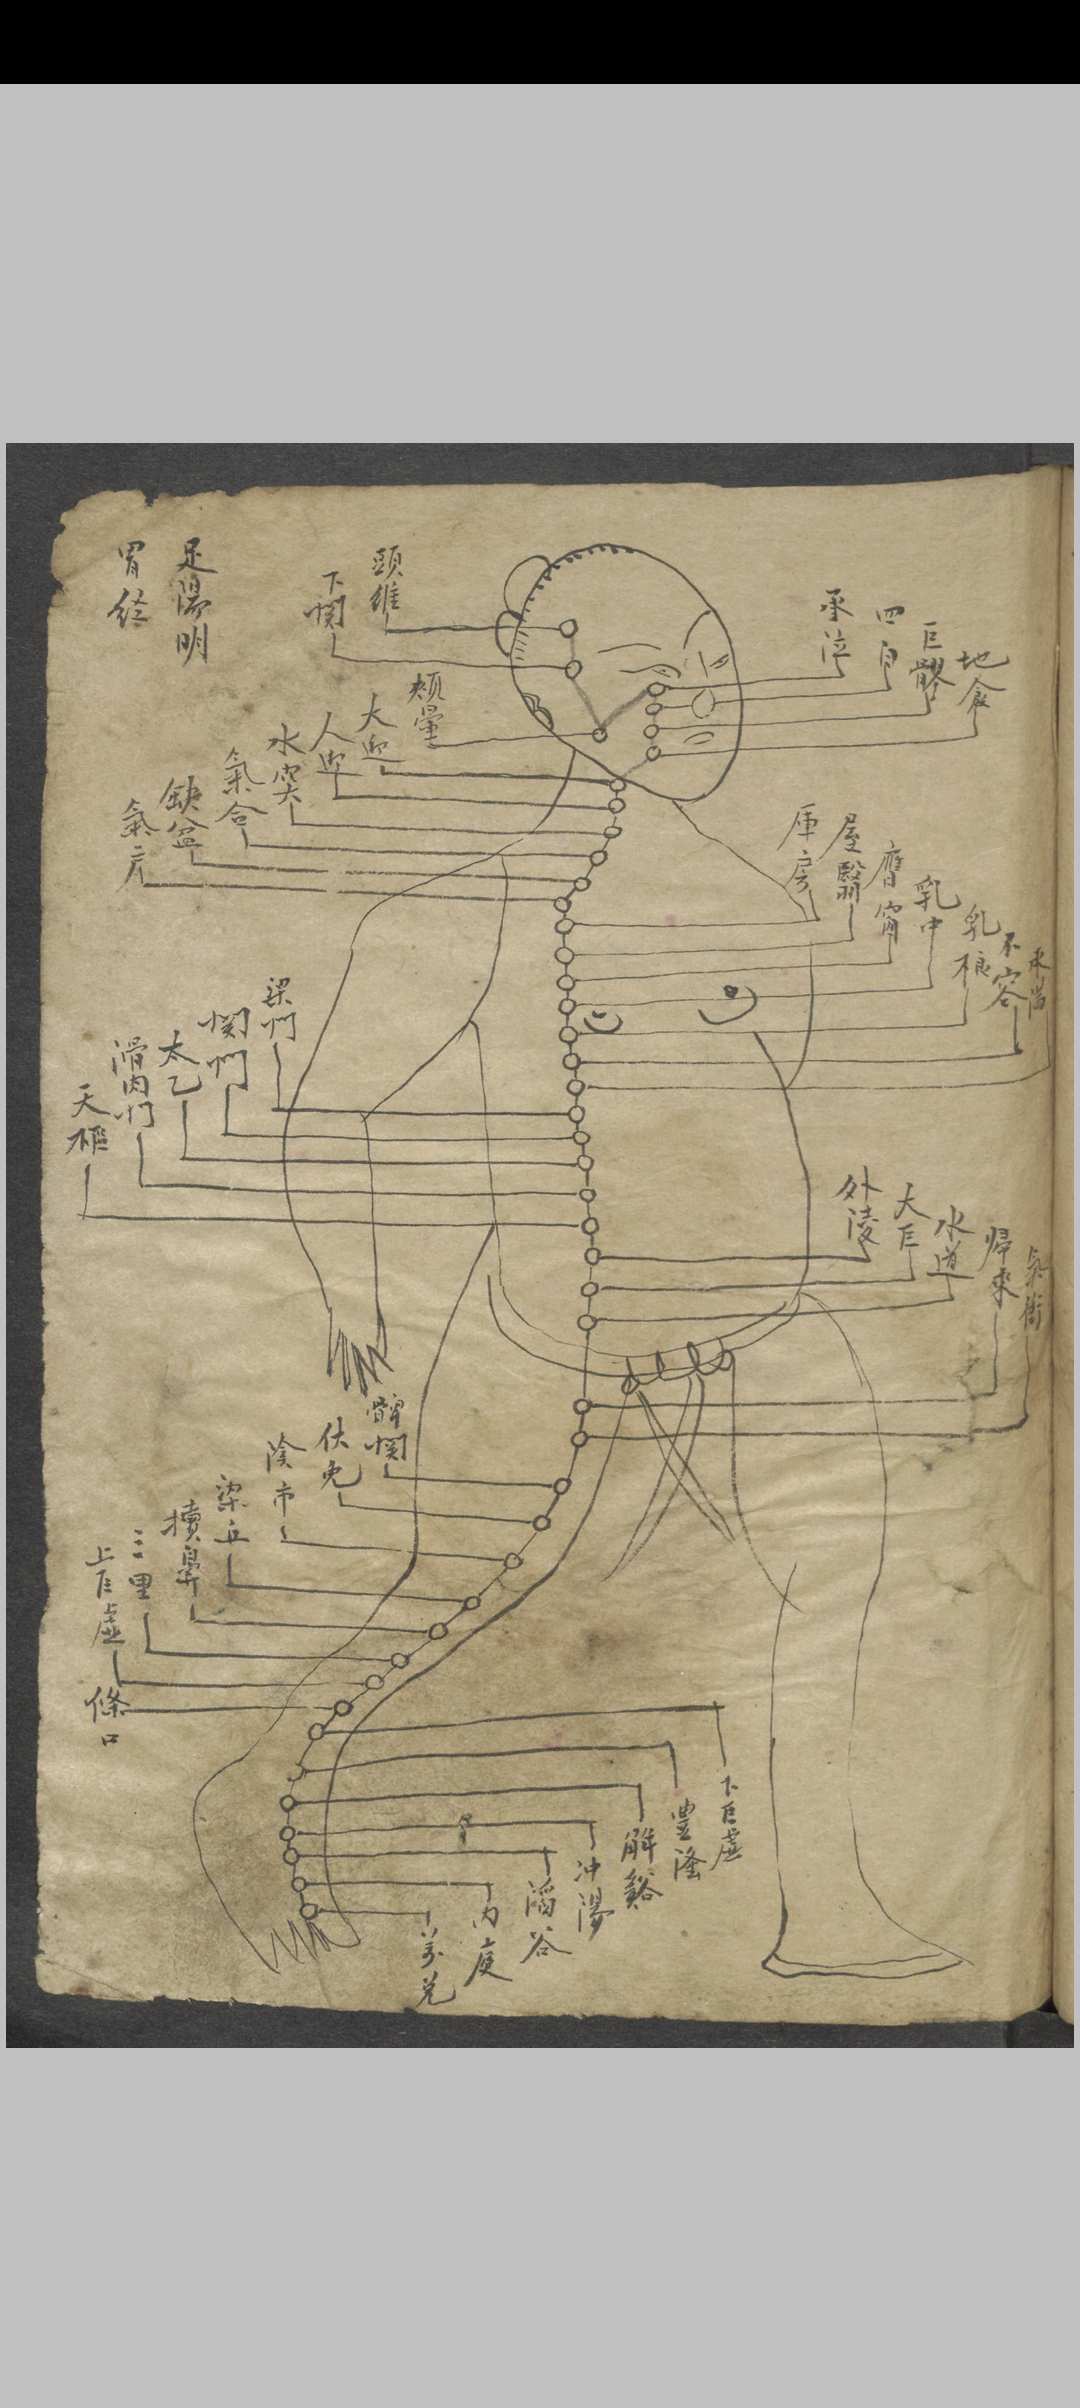 足陽明
胃経
頭維
下関
頬暈
大迎
人迎
水突
氣合
缺盆
氣戸
承泣
四白
巨髎
地倉
庫房
屋翳
膺窓
乳中
乳根
不容
承満
梁門
関門
太乙
滑肉門
天樞
外陵
大巨
水道
帰來
氣衝
髀関
伏兎
陰市
梁丘
犢鼻
三里
上巨虚
條口
下巨虚
豊隆
解谿
冲陽
滔谷
内庭
兌